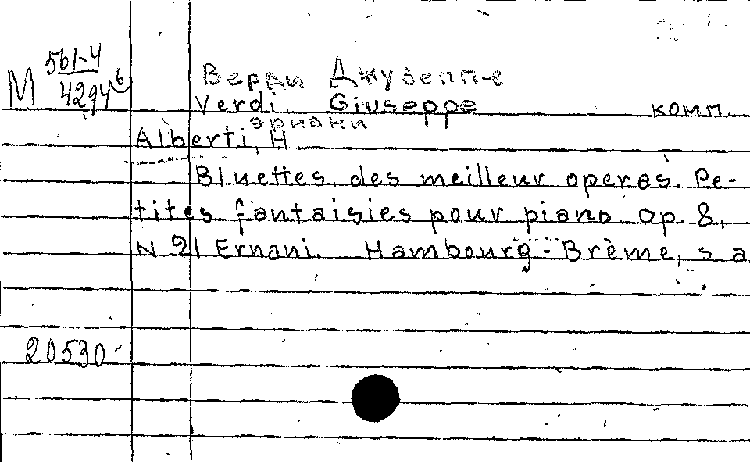 М 561-4
4294б
Верди Джузеппе
Verdi Giuseppe комп.
Эрнани
Alberti, H
Bluettes des meilleur operas. Pe-
tites fantaisies pour piano op. 8,
N 21 Ernani. Hambourg-Brème, s a
20530